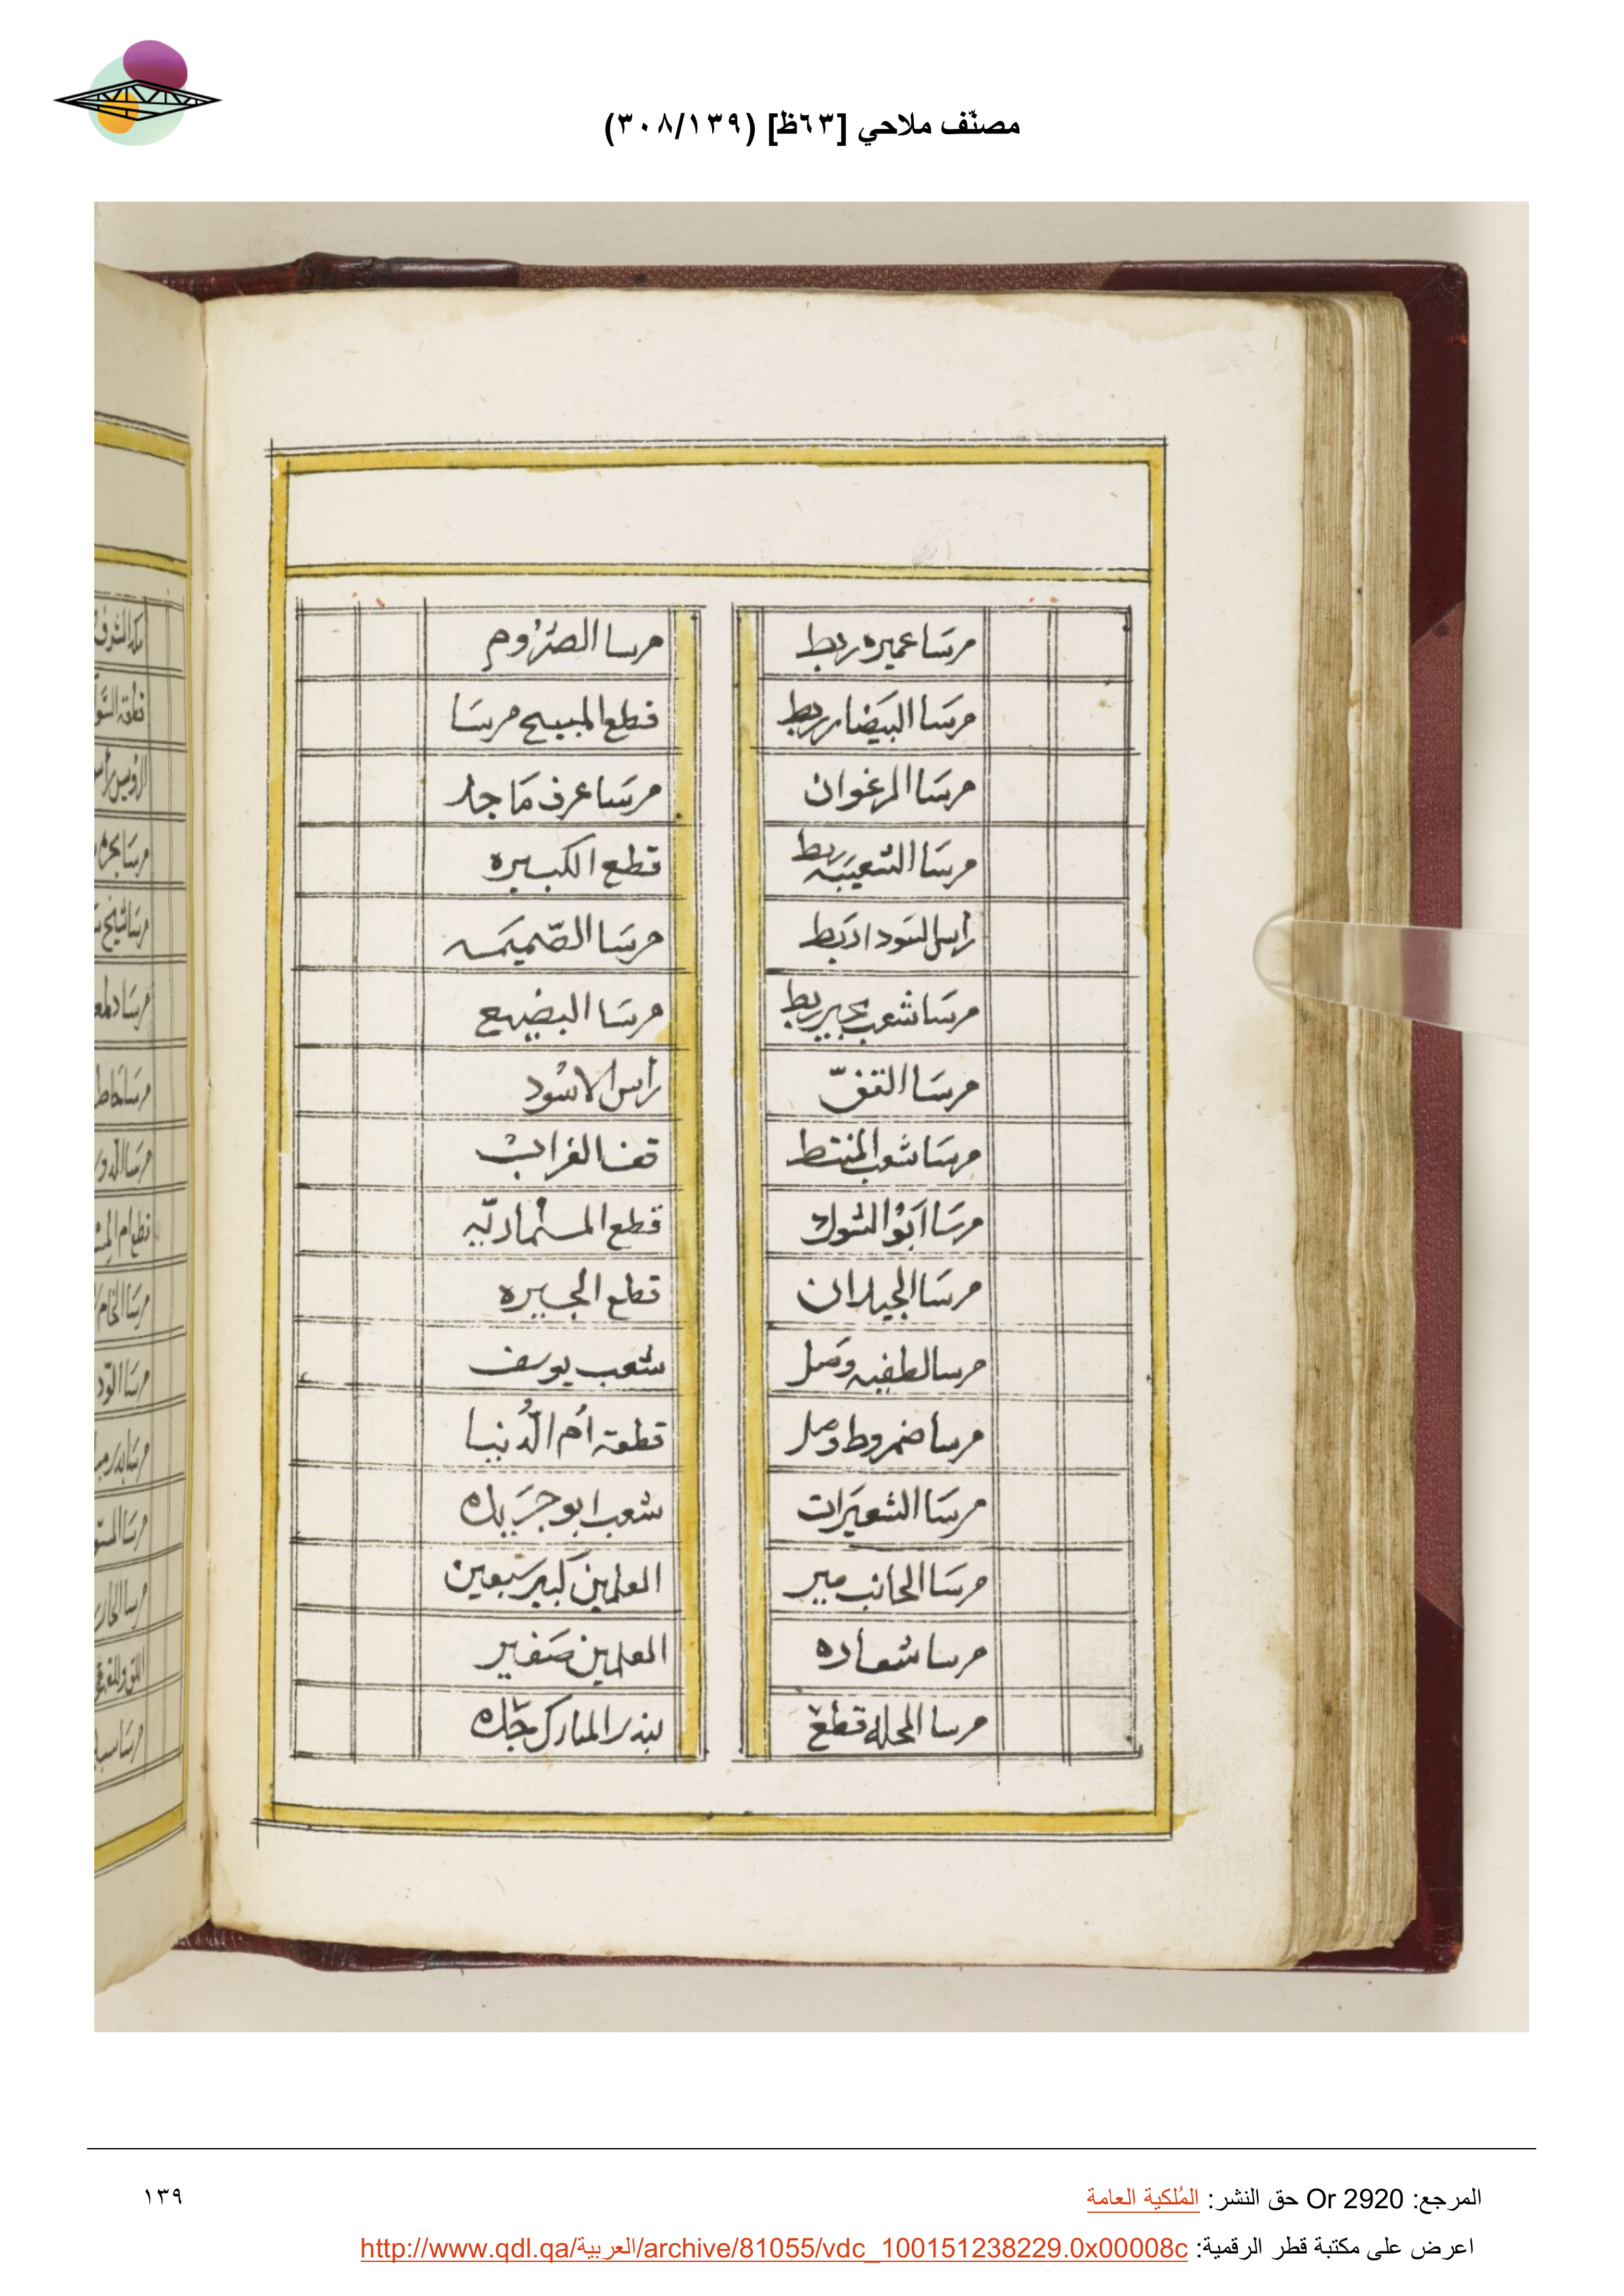 مصنّف ملاحي [٦٣ظ] (٣٠٨/١٣٩)
مرسَا عميره ربط
مرسَا البيَضا ربط
مرسَا المرغوان
مرسَا الشعيَبه ربط
راس السَودا ربَط
مرسَا شعب بحير ربط
مرسَا القفّ
مرسَا شعب المنتط
مرسَا ابَوْ الشوك
مرسَا الجيدان
مرسا لطفيه وصَل
مرسا ضمروط وصل
مرسَا الشعيَرات
مرسَا الجانب مير
مرسا شعاره
مرسا المحله قطع
مرسا الصرُوم
قطع المبيح مرسَا
مرسَا عرف مَا جد
قطع الكبيره
مرسَا الصّميمَه
مرسَا البضيع
راس الاسْود
قفا الغراب
قطع المسماريّه
قطع الجبيره
شعب يوسف
قطعة اُم الدُّنيا
شعب ابو جرَيبله
العلمين كبير سَبعين
العلمين صَغير
بندر المبارك جدّه
المرجع: Or 2920 حق النشر: المُلكية العامة
١٣٩
اعرض على مكتبة قطر الرقمية: http://www.qdl.qa/العربية/archive/81055/vdc_100151238229.0x00008c